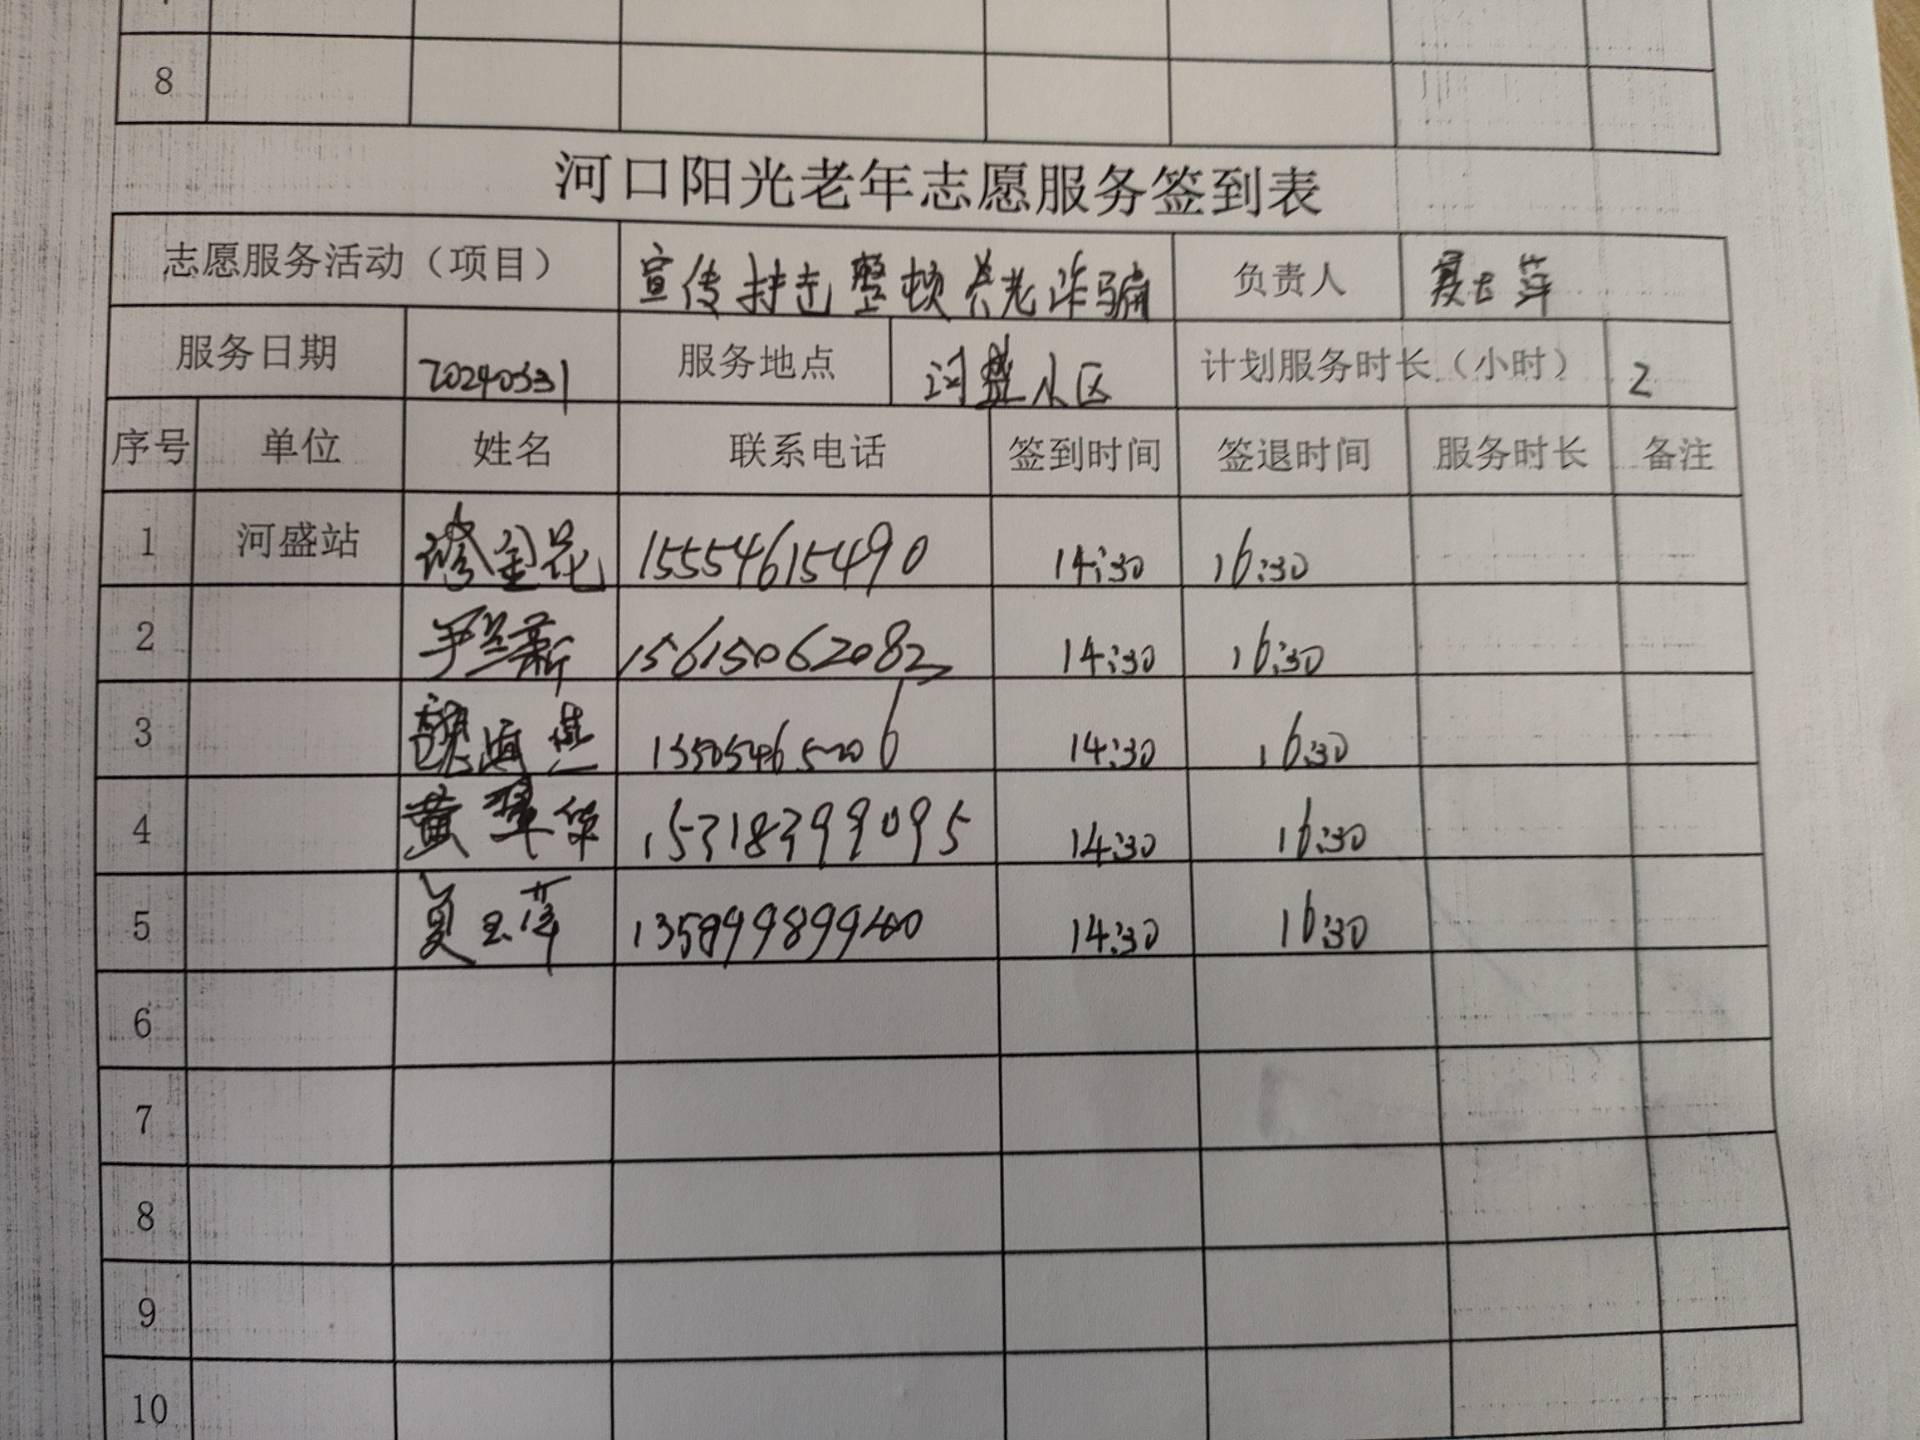 8
河口阳光老年志愿服务签到表
志愿服务活动（项目） 宣传打击整顿养老诈骗 负责人
服务日期 20240331 服务地点 河盛小区 计划服务时长（小时） 2
序号 单位 姓名 联系电话 签到时间 签退时间 服务时长 备注
1 河盛站 金花 15554615490 14:30 16:30
2 尹兰新 15615062082 14:30 16:30
3 魏海燕 14:30 16:30
4 黄翠华 15318399095 14:30 16:30
5 夏玉萍 14:30 16:30
6
7
8
9
10